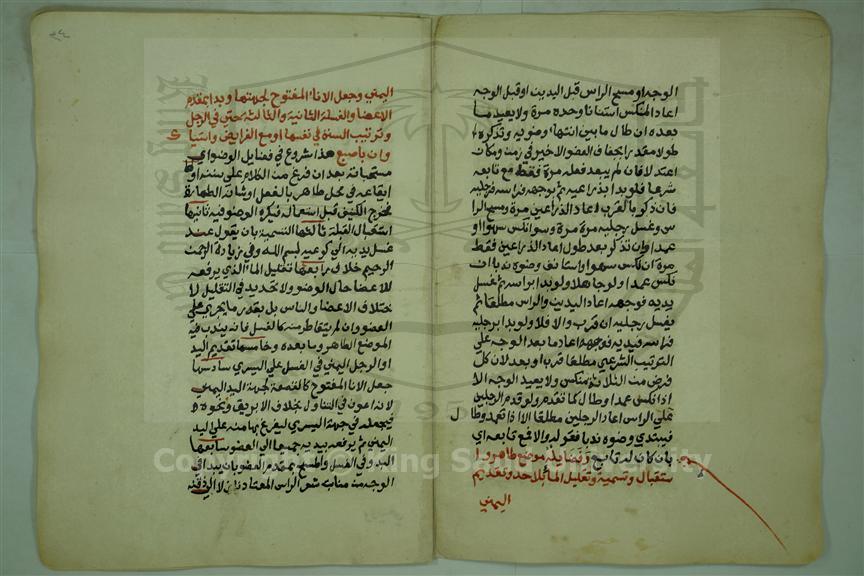 الوجه او مسح الراس قبل اليدين او قبل الوجه
اعاد المنكس استنانا وحده مرة ولا يعيد ما
بعده ان طال ما بين انتهاء وضويه وتذكره
طولا مقدرا بجفاف العضو الاخير في زمن ومكان
اعتدلا فان لم يبعد فعله مرة فقط مع تابعه
شرعا فلو بدا بذراعيه ثم بوجهه فراسه فرجليه
فان ذكر بالقرب اعاد الذراعين مرة ومسح الرا
س وغسل رجليه مرة مرة وسوا نكس سهوا او
عمدا وان تذكر بعد طول اعاد الذراعين فقط
مرة ان نكس سهوا واستانف وضوه ندبا ان
نكس عمدا ولو جاهلا ولو بدا براسه ثم غسل
يديه فوجهه اعاد اليدين والراس مطلقا ثم
يغسل رجليه ان قرب والا فلا ولو بدا برجليه
فراسه فيديه فوجهه اعاد ما بعد الوجه على
الترتيب الشرعي مطلقا قرب او بعد لان كل
فرض من الثلاثة منكس ولا يعيد الوجه الا
اذا نكس عمدا وطال كما تقدم ولو قدم الرجلين
على الراس اعاد الرجلين مطلقا الا اذا تعمد وطال
فيبتدي وضوه ندبا فقوله والا فمع تابعه اي
بان كان له تابع وفضايله موضع طاهر وا
ستقبال وتسمية وتقليل الما بلا حد وتقديم
اليمني
اليمني وجعل الانا المفتوح لجهتها وبدا بمقدم
الاعضا والغسلة الثانية والثالثة حتى في الرجل
وترتيب السنة في نفسها او مع الفرايض واستيا
ك
وان باصبع هذا شروع في فضايل الوضو اي
مستحباته بعد ان فرغ من الكلام على سننه اولها
ايقاعه في محل طاهر بالفعل او شانه الطهارة
فخرج الكنيف قبل استعماله فيكره الوضو فيه ثانيها
استقبال القبلة ثالثها التسمية بان يقول عند
غسل يديه الى كوعيه بسم الله وفي زيادة الرحمن
الرحيم خلاف رابعها تقليل الما الذي يرفعه
للاعضا حال الوضو ولا تحديد في التقليل لا
ختلاف الاعضا والناس بل بقدر ما يجري على
العضو وان لم يتقاطر منه كالغسل فانه يندب فيه
الموضع الطاهر وما بعده وخامسها تقديم اليد
او الرجل اليمني في الغسل على اليسري سادسها
جعل الانا المفتوح كالقصعة لجهة اليد اليمني
لانه اعون في التناول بخلاف الابريق ونحوه
فيجعله في جهة اليسري ليفرغ بها منه على اليد
اليمني ثم يرفعه بيديه جميعا الى العضو سابعها
البدء في الغسل والمسح بمقدم العضو بان يبدا في
الوجه من منابت شعر الراس المعتاد نازلا الى ذقنه